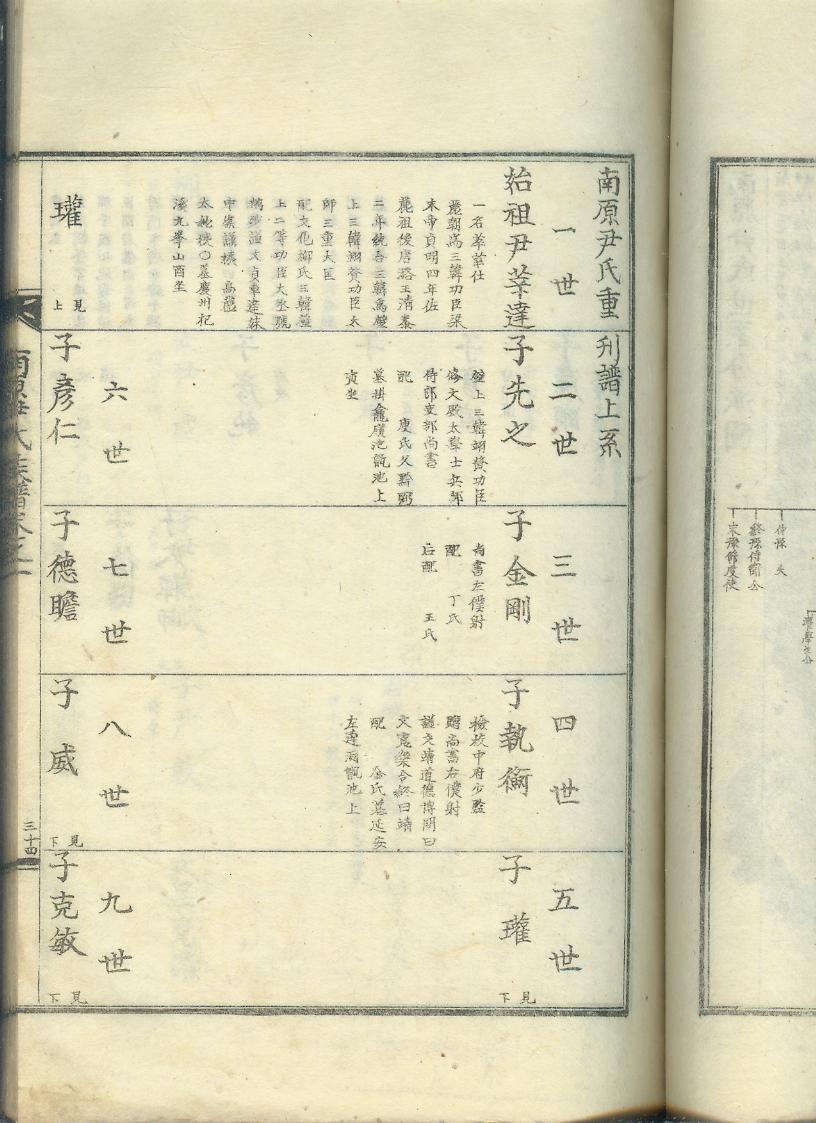 南原尹氏重刋譜上系
一世
始祖尹莘達
一名莘莘仕
麗朝爲三韓功臣梁
末帝貞明四年佐
麗祖後唐潞王清泰
二年統合三韓爲壁
上三韓翊贊功臣太
師三重大匡
配文化柳氏三韓壁
上二等功臣大丞號
太 ○墓慶州杞
溪九峯山酉坐
二世
子先之
壁上三韓翊贊功臣
修文殿太學士兵部
侍郎吏部尚書
配 庾氏父黔弼
墓掛龕礦池甑池上
寅坐
三世
子金剛
尚書左僕射
配 丁氏
后配 王氏
四世
子執衡
檢校中府少監
贈尚書右僕射
諡文靖道德博聞曰
文寬樂令終曰靖
配 金氏墓延安
左邊兩甑池上
五世
子瓘
見下
瓘
見上
六世
子彦仁
七世
子德瞻
八世
子威
見下
九世
子克敏
見下
南原尹氏族譜卷之一
三十四
仲孫 夫
終孫侍衛公
末孫節度使